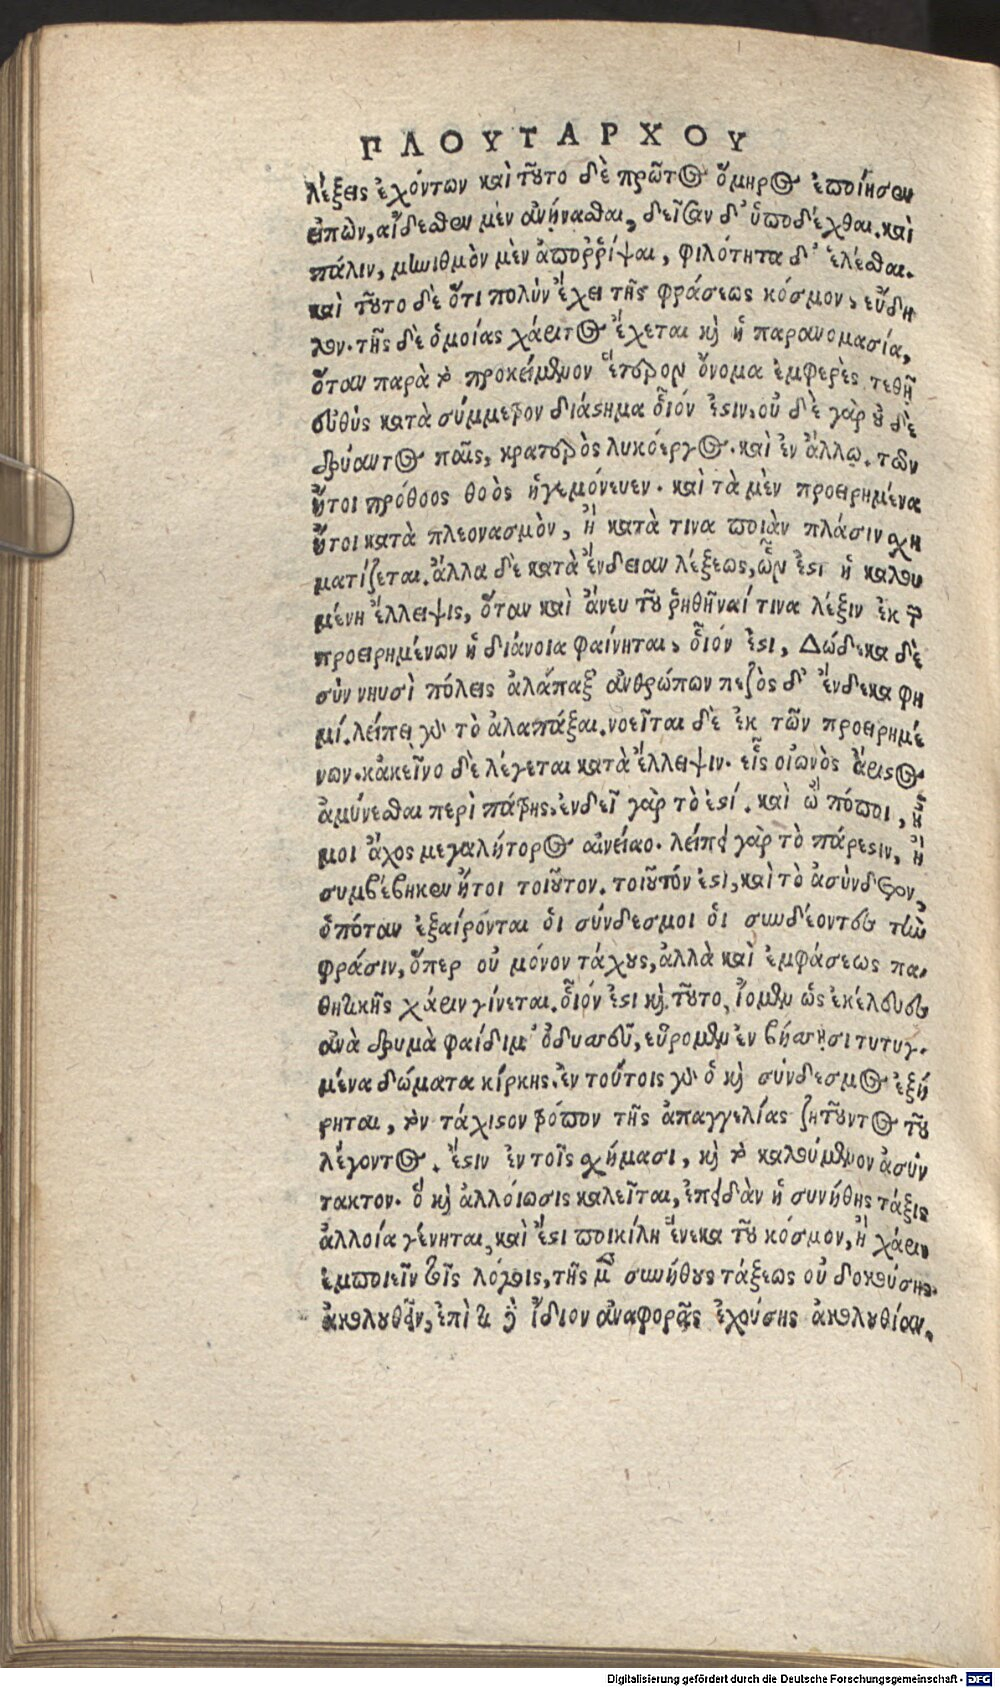 ΠΛΟΥΤΑΡΧΟΥ
λέξεις ἐχόντων καὶ τοῦτο δὲ πρῶτος ὅμηρος ἐποίησεν
εἰπὼν, αἴδεσθεν μὲν ἀνήνασθαι, δεῖσαν δ' ὑποδέχθαι. καὶ
πάλιν, μωιθμὸν μὲν ἀποῤῥίψαι, φιλότητα δ' ἑλέσθαι.
καὶ τοῦτο δὲ ὅτι πολὺν ἔχει τῆς φράσεως κόσμον, εὔδη
λον. τῆς δὲ ὁμοίας χάριτος ἔχεται καὶ ἡ παρανομασία,
ὅταν παρὰ τὸ προκείμενον ἕτερον ὄνομα ἐμφερὲς τεθῇ
εὐθὺς κατὰ σύμμετρον διάστημα οἷόν ἐστιν. οὐ δὲ γὰρ οὐ δὲ
δρύαντος παῖς, κρατερὸς λυκόεργος. καὶ ἐν ἄλλῳ. τῶν
ἤτοι πρόθοος θοὸς ἡγεμόνευεν. καὶ τὰ μὲν προειρημένα
ἤτοι κατὰ πλεονασμὸν, ἢ κατὰ τινα ποιὰν πλάσιν σχη
ματίζεται. ἄλλα δὲ κατὰ ἔνδειαν λέξεως, ὧν ἐστι ἡ καλου
μένη ἔλλειψις, ὅταν καὶ ἄνευ τοῦ ῥηθῆναί τινα λέξιν ἐκ τῶν
προειρημένων ἡ διάνοια φαίνηται, οἷόν ἐστι, Δώδεκα δὲ
σὺν νηυσὶ πόλεις ἀλάπαξ' ἀνθρώπων πεζὸς δ' ἕνδεκα φη
μί. λείπει γὰρ τὸ ἀλαπάξαι. νοεῖται δὲ ἐκ τῶν προειρημέ
νων. κἀκεῖνο δὲ λέγεται κατὰ ἔλλειψιν. εἷς οἰωνὸς ἄριστος
ἀμύνεσθαι περὶ πάτρης. ἐνδεῖ γὰρ τὸ ἐστί. καὶ ὢ πόποι, ἦ
μοι ἄχος μεγαλήτορος αἰνείαο. λείπει γὰρ τὸ πάρεστιν, ἢ
συμβέβηκεν ἤτοι τοιοῦτον. τοιοῦτόν ἐστι, καὶ τὸ ἀσύνδετον,
ὁπόταν ἐξαίρονται οἱ σύνδεσμοι οἱ συνδέοντες τὴν
φράσιν, ὅπερ οὐ μόνον τάχους, ἀλλὰ καὶ ἐμφάσεως πα-
θητικῆς χάριν γίνεται. οἷόν ἐστι καὶ τοῦτο, ἴομεν ὡς ἐκέλευες
ἀνὰ δρυμὰ φαίδιμ' ὀδυσσεῦ, εὕρομεν ἐν βήσσῃσι τυτυγ-
μένα δώματα κίρκης. ἐν τούτοις γὰρ ὁ καὶ σύνδεσμος ἐξῄ
ρηται, τὸν τάχιστον τρόπον τῆς ἀπαγγελίας ζητοῦντος τοῦ
λέγοντος. ἔστιν ἐν τοῖς σχήμασι, καὶ τὸ καλούμενον ἀσύν
τακτον. ὃ καὶ ἀλλοίωσις καλεῖται, ἐπειδὰν ἡ συνήθης τάξις
ἀλλοία γένηται, καὶ ἔστι ποικίλη ἕνεκα τοῦ κόσμον, ἢ χάριν
ἐμποιεῖν τοῖς λόγοις, τῆς μὲν συνήθους τάξεως οὐ δοκούσης
ἀκολουθεῖν, ἐπὶ τι δὲ ἴδιον ἀναφορᾶς ἐχούσης ἀκολουθίαν.
Digitalisierung gefördert durch die Deutsche Forschungsgemeinschaft - DFG